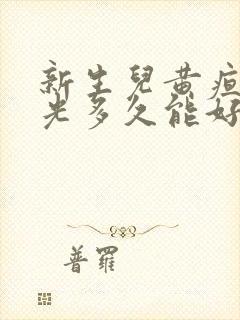 新生兒黃疸
光多久能好
普羅